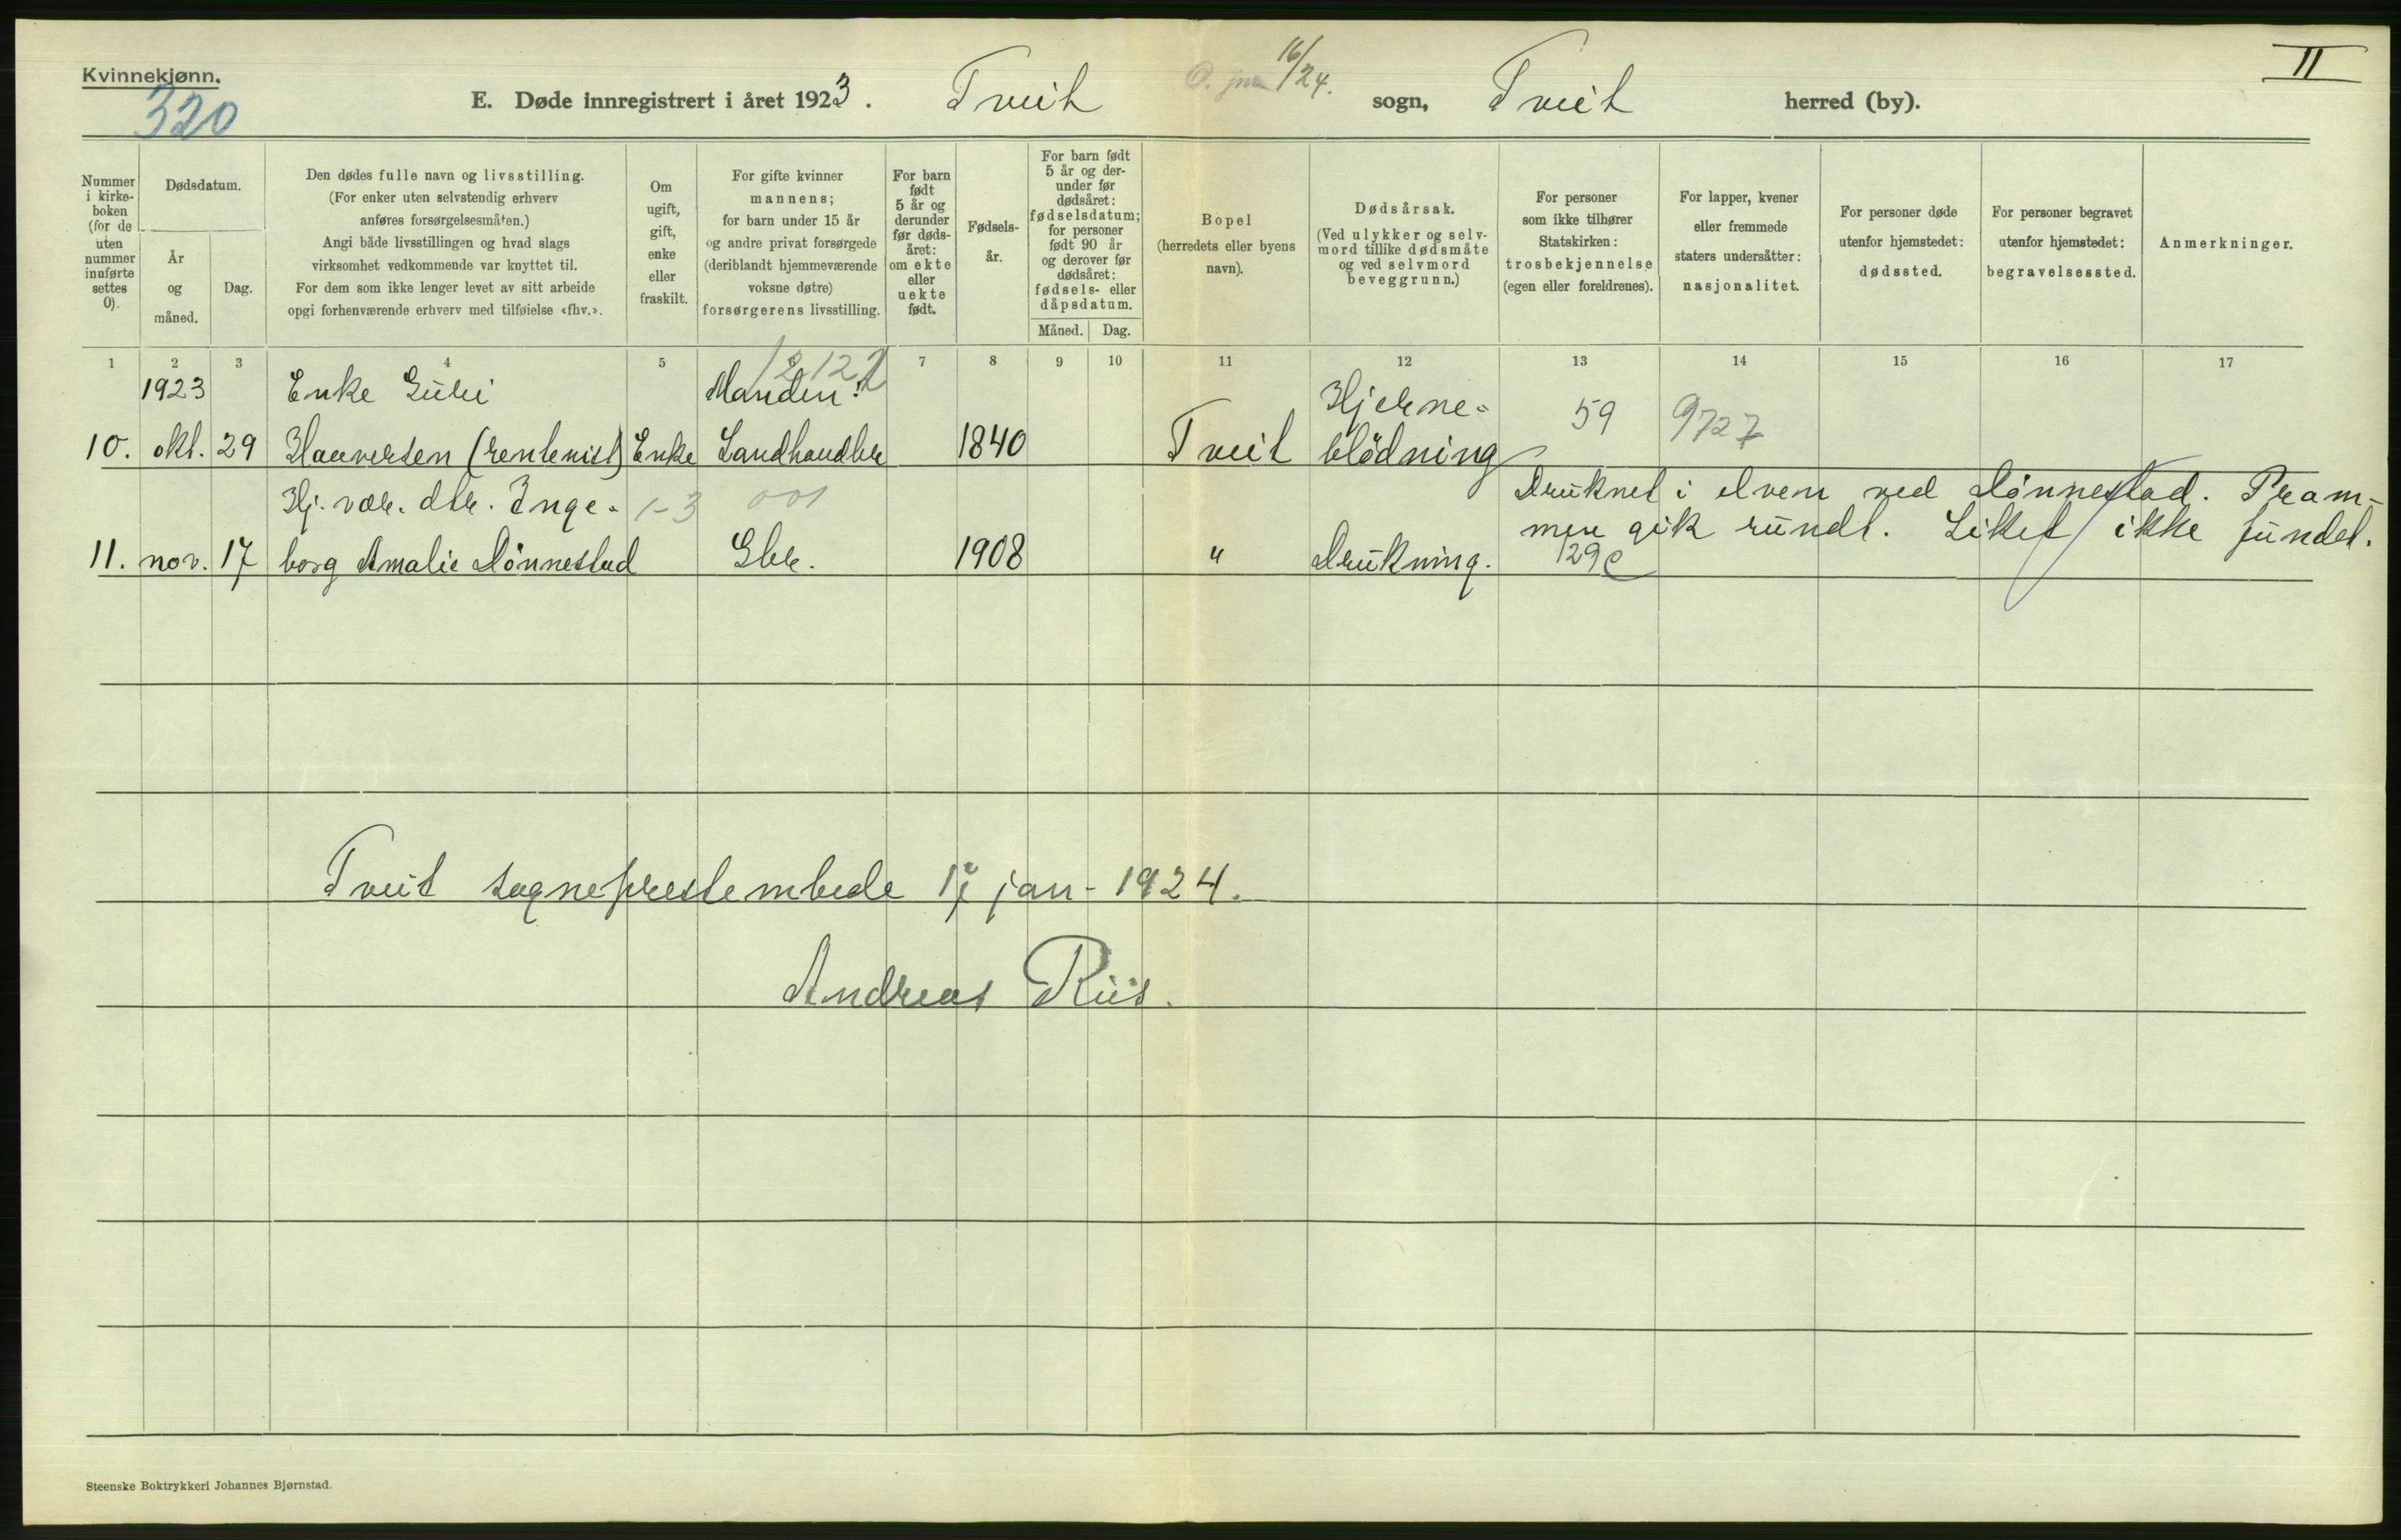 Kvinnekjønn.
320
E. Døde innregistrert i året 1923. Tveit sogn, Tveit herred (by).
16/24.
II
Nummer i kirke-boken (for de uten nummer innførte settes 0).
Dødsdatum.
År og måned.
Dag.
Den dødes fulle navn og livsstilling.
(For enker uten selvstendig erhverv
anføres forsørgelsesmåten.)
Angi både livsstillingen og hvad slags
virksomhet vedkommende var knyttet til.
For dem som ikke lenger levet av sitt arbeide
opgi forhenværende erhverv med tilføielse «fhv.».
Om ugift, gift, enke eller fraskilt.
For gifte kvinner
mannens;
for barn under 15 år
og andre privat forsørgede
(deriblandt hjemmeværende
voksne døtre)
forsørgerens livsstilling.
For barn født 5 år og derunder før døds-året: om ekte eller uekte født.
Fødsels-år.
For barn født
5 år og der-
under før
dødsåret:
fødselsdatum;
for personer
født 90 år
og derover før
dødsåret:
fødsels- eller
dåpsdatum.
Måned. Dag.
Bopel
(herredets eller byens
navn).
Dødsårsak.
(Ved ulykker og selv-
mord tillike dødsmåte
og ved selvmord
beveggrunn.)
For personer
som ikke tilhører
Statskirken:
trosbekjennelse
(egen eller foreldrenes).
For lapper, kvener
eller fremmede
staters undersåtter:
nasjonalitet.
For personer døde
utenfor hjemstedet:
dødssted.
For personer begravet
utenfor hjemstedet:
begravelsessted.
Anmerkninger.
1 2 3 4 5 7 8 9 10 11 12 13 14 15 16 17
1923 Enke Manden: Hjerne- 59 9727
10. okt. 29 (rentenist) Enke Landhandler 1840 Tveit blödning
Hj. vær. dtr. Inge- 1-3 001 Druknet i elven ved Dönnestad. Pram-
men gik rundt. Liket ikke fundet.
11. nov. 17 borg Amalie Dönnestad Gbr. 1908 " Drukning. 129c
Tveit sogneprestembede 17 jan- 1924.
Andreas Riis.
Steenske Boktrykkeri Johannes Bjørnstad.